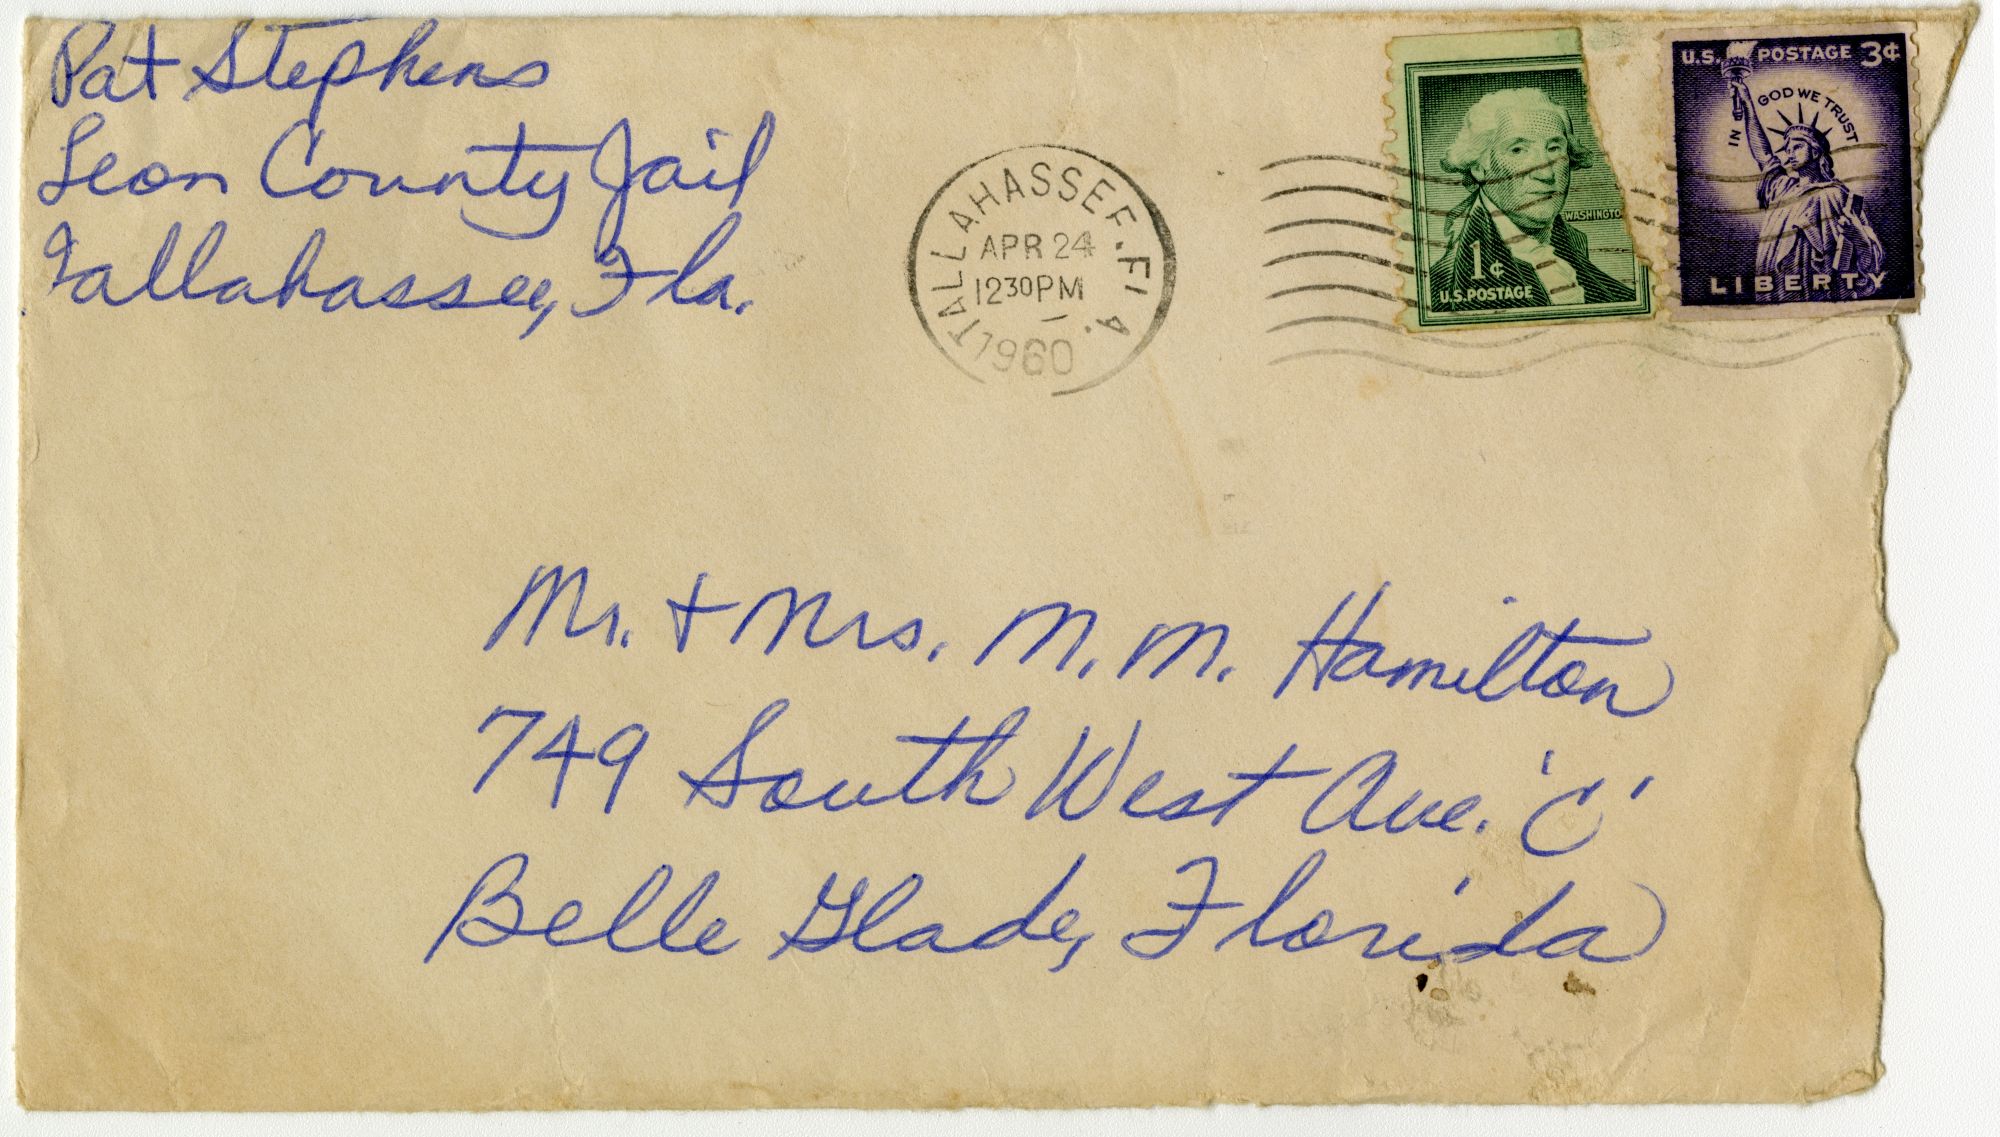 Pat Stephens
Leon County Jail
Tallahassee, Fla.
TALLAHASSEE, FLA.
APR 24
1230PM
1960
WASHINGTO
1¢
U.S. POSTAGE
U.S. POSTAGE 3¢
IN GOD WE TRUST
LIBERTY
Mr. + Mrs. M. M. Hamilton
749 South West Ave. 'C'
Belle Glade, Florida